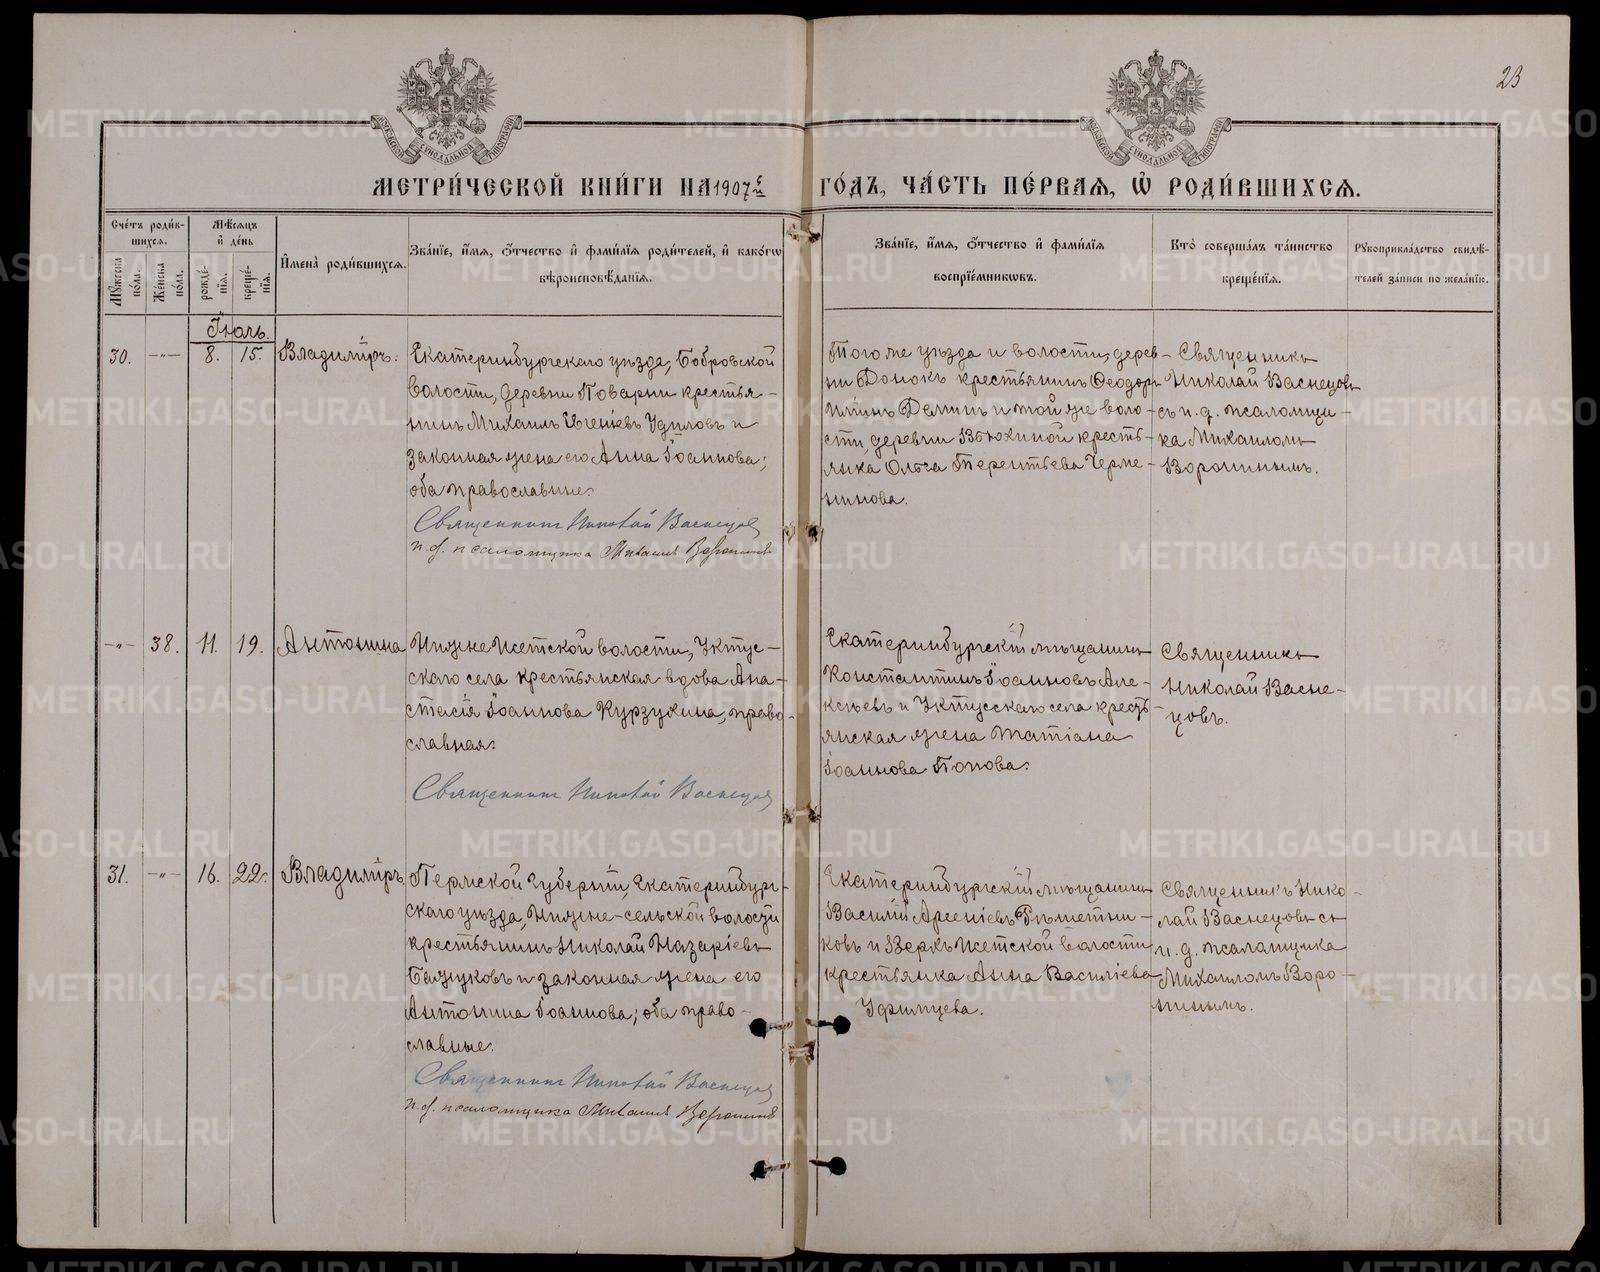 23
МОСКОВСКОЙ СѴНОДАЛЬНОЙ ТИПОГРАФІИ
МОСКОВСКОЙ СѴНОДАЛЬНОЙ ТИПОГРАФІИ
МЕТРИ́ЧЕСКОЙ КНИ́ГИ НА 1907 й ГО́ДЪ, ЧА́СТЬ ПЕ́РВАЯ, Ѡ҆ РОДИ́ВШИХСЯ.
Сче́тъ роди́в-
шихся.
Мꙋжеска по́ла.
Же́нска по́ла.
Мѣ́сяцъ
и҆ де́нь
рожде́-
нїя.
креще́-
нїя.
И҆мена̀ роди́вшихся.
Зва́нїе, и҆́мя, ѻ҆́тчество и҆ фами́лїя роди́телей, и҆ како́гѡ
вѣроисповѣ́данїя.
Зва́нїе, и҆́мя, ѻ҆́тчество и҆ фами́лїя
воспрїе́мникѡвъ.
Кто̀ соверша́лъ та́инство
креще́нїя.
Рꙋкоприкла́дство свидѣ́-
телей за́писи по жела́нїю.
Іюль.
30. —"— 8. 15. Владиміръ.
Екатеринбургскаго уѣзда, Бобровской
волости, деревни Поварни крестья-
нинъ Михаилъ Евгеніевъ Удиловъ и
законная жена его Анна Іоаннова;
оба православные.
Священникъ Николай Васнецовъ
и.д. псаломщика Михаилъ Воронинъ
Того же уѣзда и волости, дерев-
ни Донокъ крестьянинъ Ѳеодоръ
Ильинъ Деминъ и той же воло-
сти, деревни Вьюхиной кресть-
янка Ольга Терентьева Черме-
нинова.
Священникъ
Николай Васнецовъ
съ и.д. псаломщи-
ка Михаиломъ
Воронинымъ.
—"— 38. 11. 19. Антонина
Нижне Исетской волости, Уктус-
скаго села крестьянская вдова Ана-
стасія Іоаннова Курзукина, право-
славная.
Священникъ Николай Васнецовъ
Екатеринбургскій мѣщанинъ
Константинъ Іоанновъ Але-
ксѣевъ и Уктусскаго села кресть-
янская жена Татіана
Іоаннова Попова.
Священникъ
Николай Васне-
цовъ.
31. —"— 16. 22. Владиміръ
Пермской Губерніи, Екатеринбург-
скаго уѣзда, Нижне-сельской волости
крестьянинъ Николай Назаріевъ
Бажуковъ и законная жена его
Антонина Іоаннова; оба право-
славные.
Священникъ Николай Васнецовъ
и.д. псаломщика Михаилъ Воронинъ
Екатеринбургскій мѣщанинъ
Василій Арсеніевъ Рѣшетни-
ковъ и Верхъ Исетской волости
крестьянка Анна Василіева
Уфимцева.
Священникъ Нико-
лай Васнецовъ съ
и.д. псаломщика
Михаиломъ Воро-
нинымъ.
METRIKI.GASO-URAL.RU